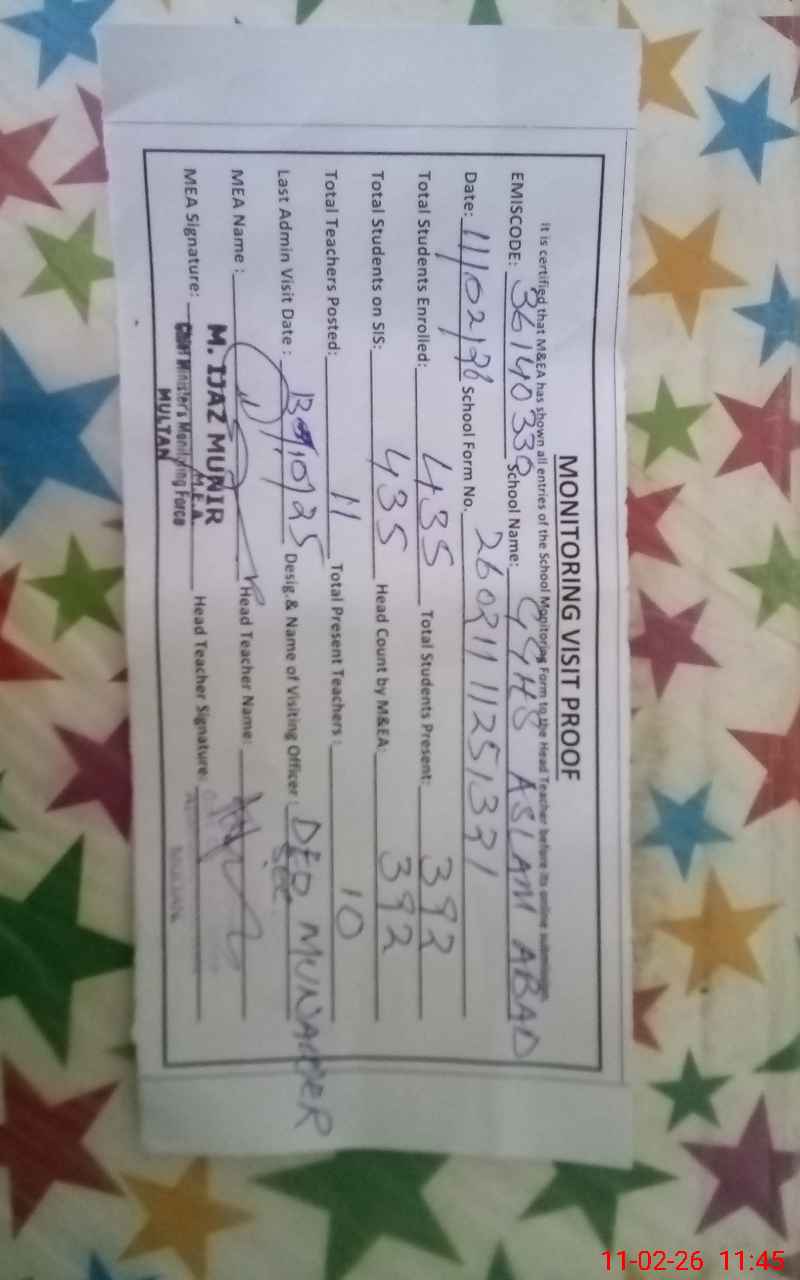 MONITORING VISIT PROOF
It is certified that M&EA has shown all entries of the School Monitoring Form to the Head Teacher before its online submission.
EMISCODE: 36140330 School Name: GGHS ASLAM ABAD
Date: 11/02/26 School Form No. 260211 1125 1331
Total Students Enrolled: 435 Total Students Present: 392
Total Students on SIS: 435 Head Count by M&EA: 392
Total Teachers Posted: 11 Total Present Teachers: 10
Last Admin Visit Date: 13/10/25 Desig.& Name of Visiting Officer: DEO Sec
MEA Name: Head Teacher Name:
M. IJAZ MUNIR
M.E.A.
MEA Signature: Chief Minister's Monitoring Force Head Teacher Signature:
MULTAN
MULTAN
11-02-26 11:45